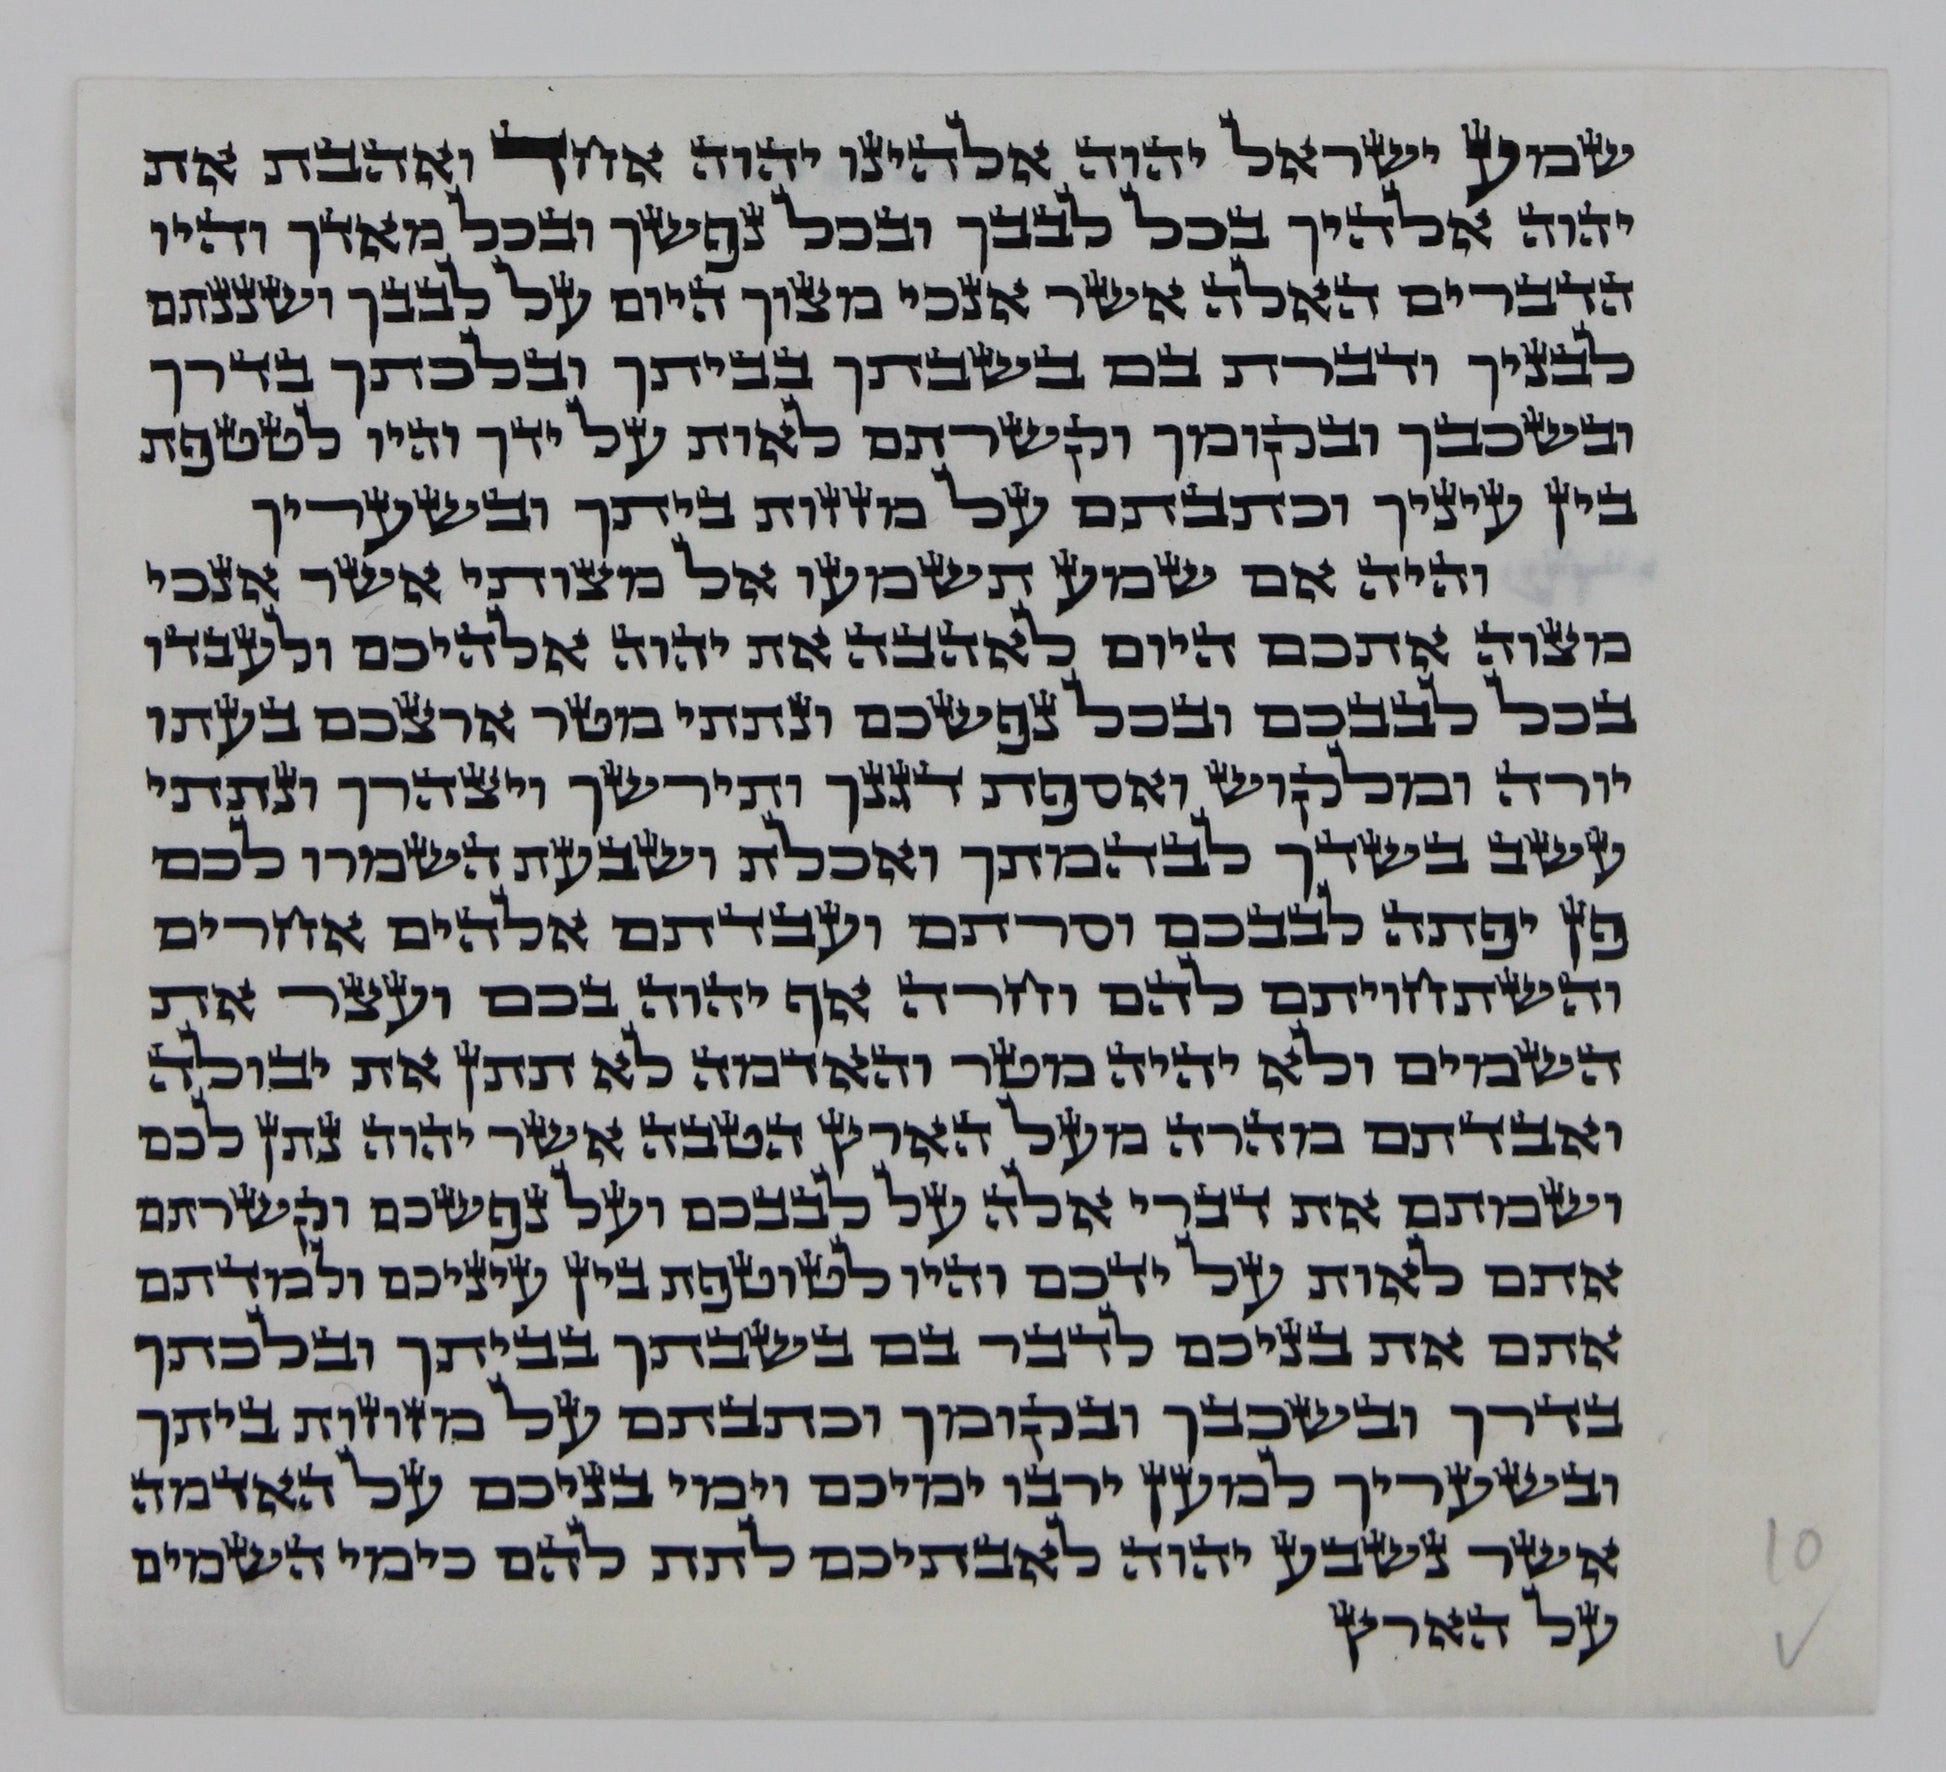 שמע ישראל יהוה אלהינו יהוה אחד ואהבת את
יהוה אלהיך בכל לבבך ובכל נפשך ובכל מאדך והיו
הדברים האלה אשר אנכי מצוך היום על לבבך ושננתם
לבניך ודברת בם בשבתך בביתך ובלכתך בדרך
ובשכבך ובקומך וקשרתם לאות על ידך והיו לטטפת
בין עיניך וכתבתם על מזזות ביתך ובשעריך
והיה אם שמע תשמעו אל מצותי אשר אנכי
מצוה אתכם היום לאהבה את יהוה אלהיכם ולעבדו
בכל לבבכם ובכל נפשכם ונתתי מטר ארצכם בעתו
יורה ומלקוש ואספת דגנך ותירשך ויצהרך ונתתי
עשב בשדך לבהמתך ואכלת ושבעת השמרו לכם
פן יפתה לבבכם וסרתם ועבדתם אלהים אחרים
והשתחויתם להם וחרה אף יהוה בכם ועצר את
השמים ולא יהיה מטר והאדמה לא תתן את יבולה
ואבדתם מהרה מעל הארץ הטבה אשר יהוה נתן לכם
ושמתם את דברי אלה על לבבכם ועל נפשכם וקשרתם
אתם לאות על ידכם והיו לטוטפת בין עיניכם ולמדתם
אתם את בניכם לדבר בם בשבתך בביתך ובלכתך
בדרך ובשכבך ובקומך וכתבתם על מזוזות ביתך
ובשעריך למען ירבו ימיכם וימי בניכם על האדמה
אשר נשבע יהוה לאבתיכם לתת להם כימי השמים
על הארץ
10